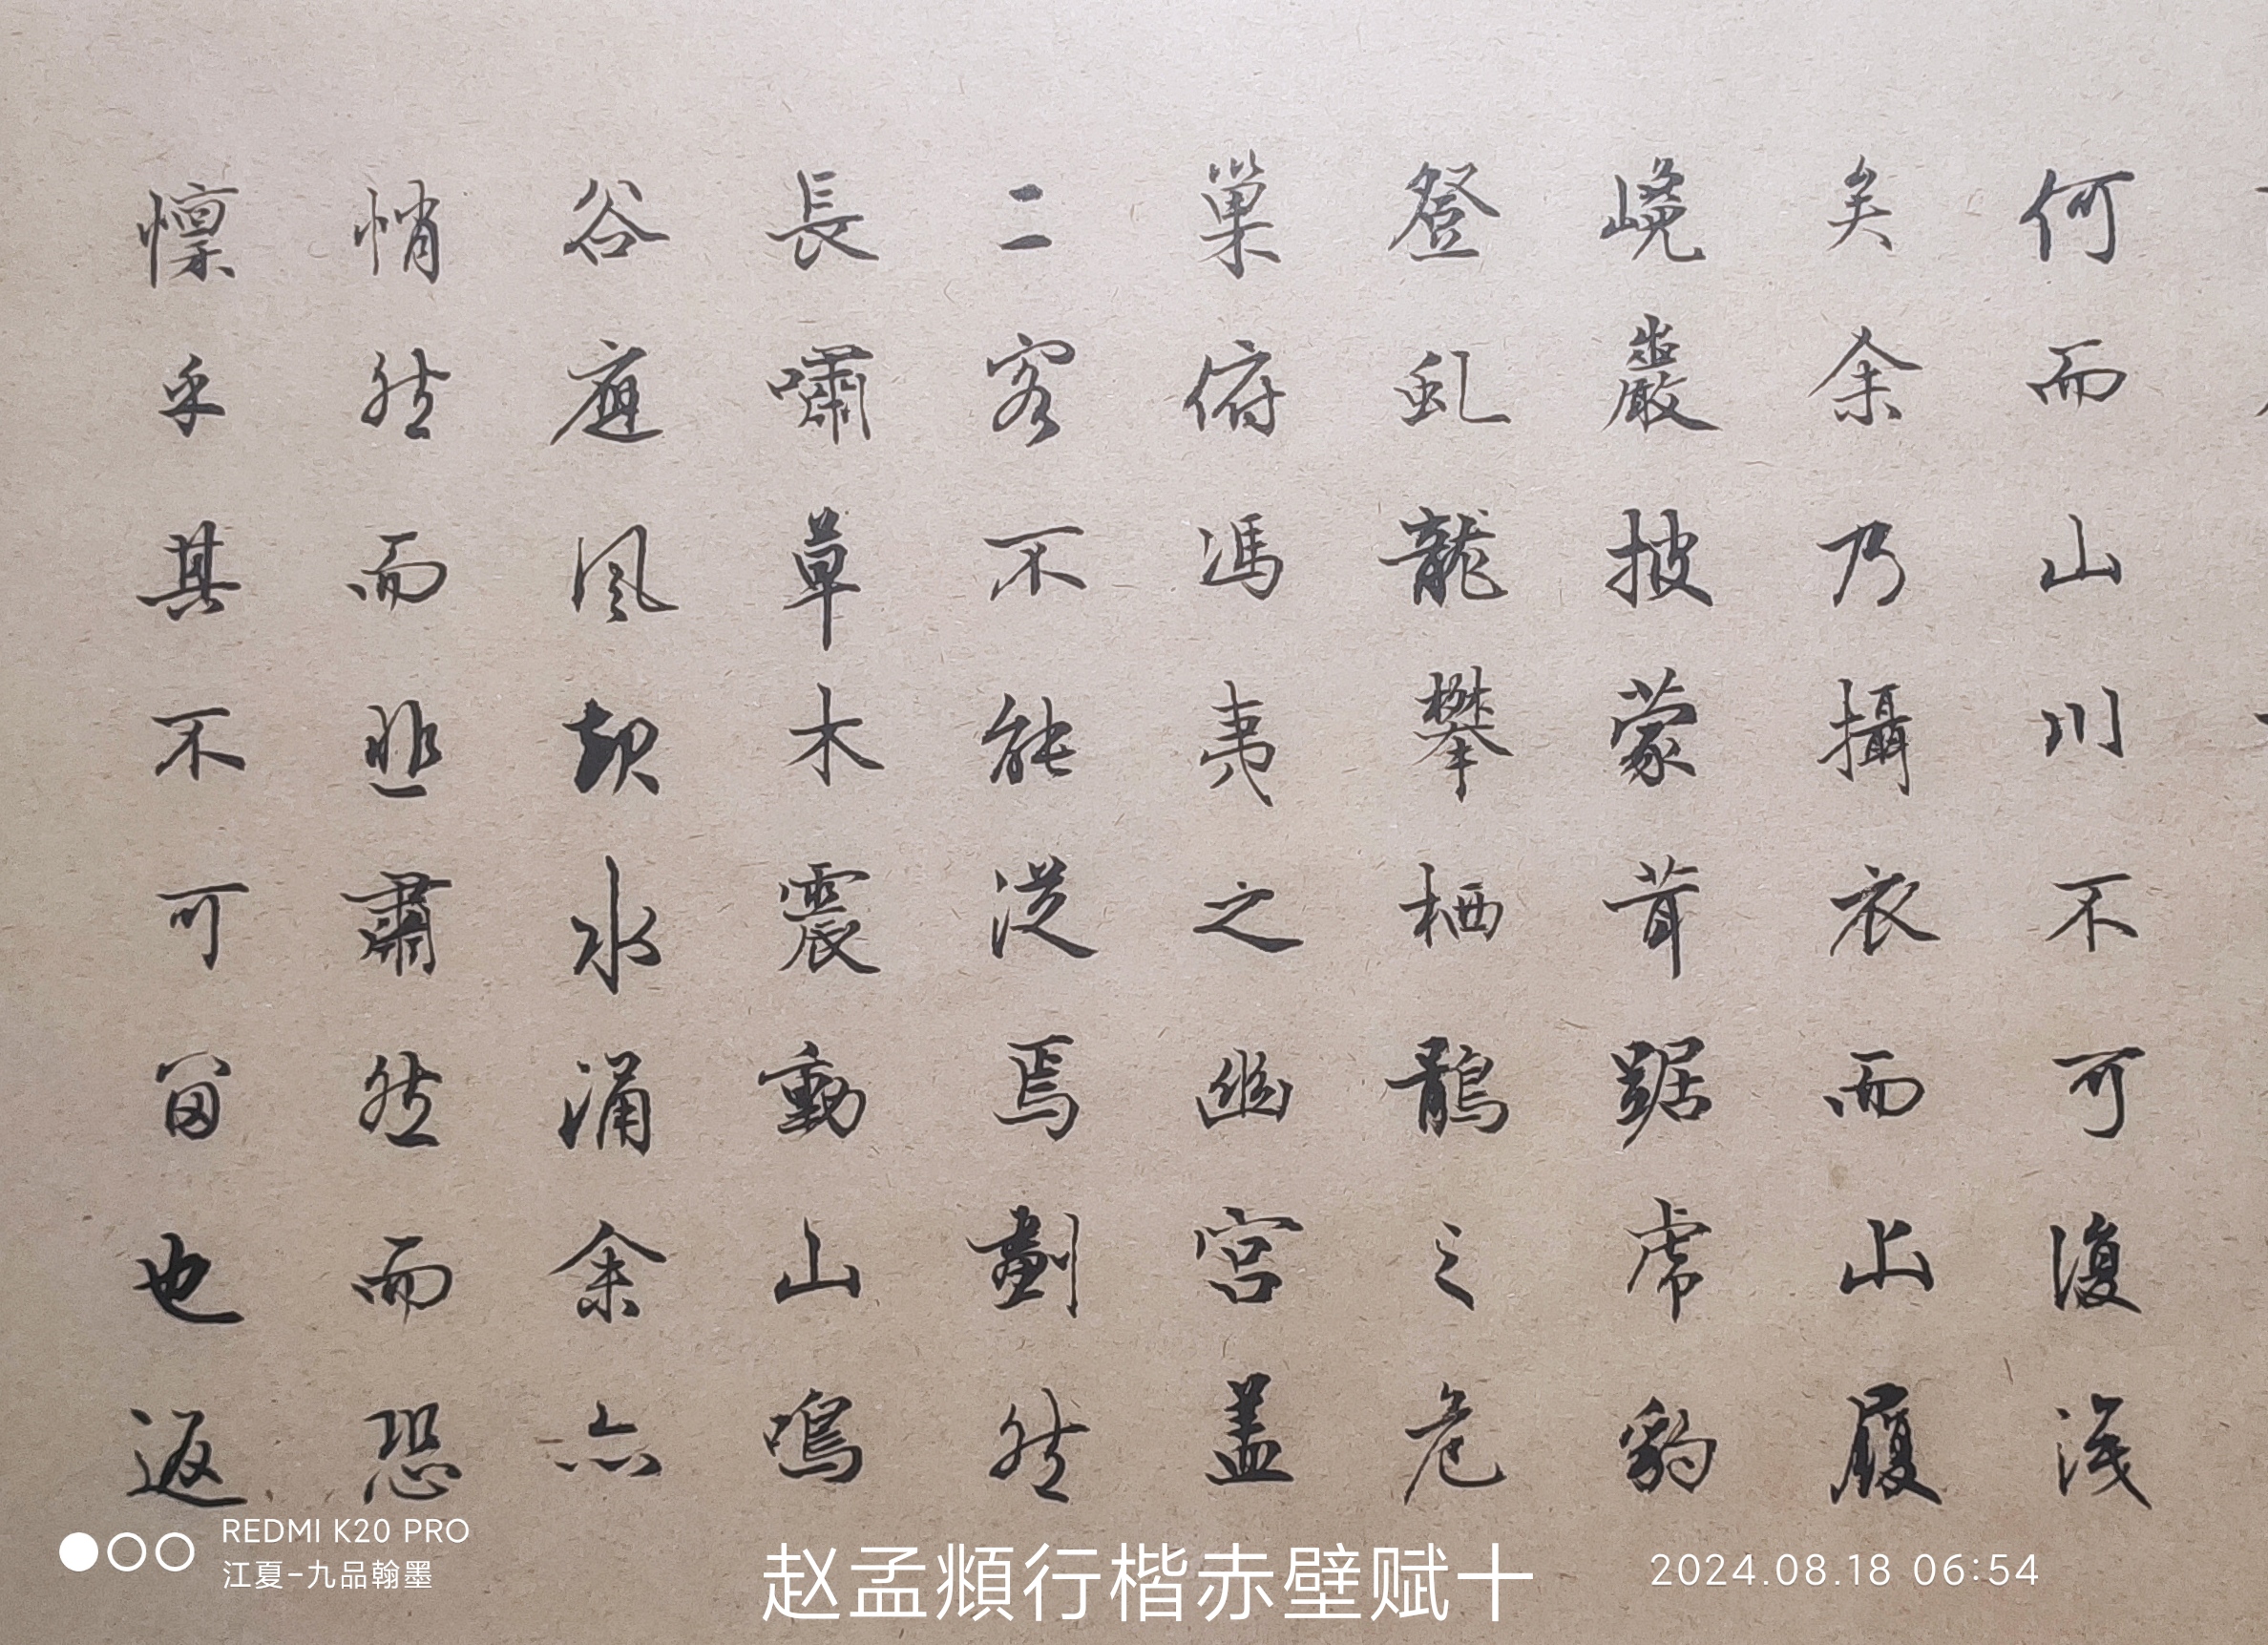 何而山川不可復識
矣余乃攝衣而上履
巉巖披蒙茸踞虎豹
登虬龍攀栖鶻之危
巢俯馮夷之幽宮盖
二客不能從焉劃然
長嘯草木震動山鳴
谷應風起水涌余亦
悄然而悲肅然而恐
懔乎其不可留也返
REDMI K20 PRO
江夏-九品翰墨
赵孟頫行楷赤壁赋十
2024.08.18 06:54